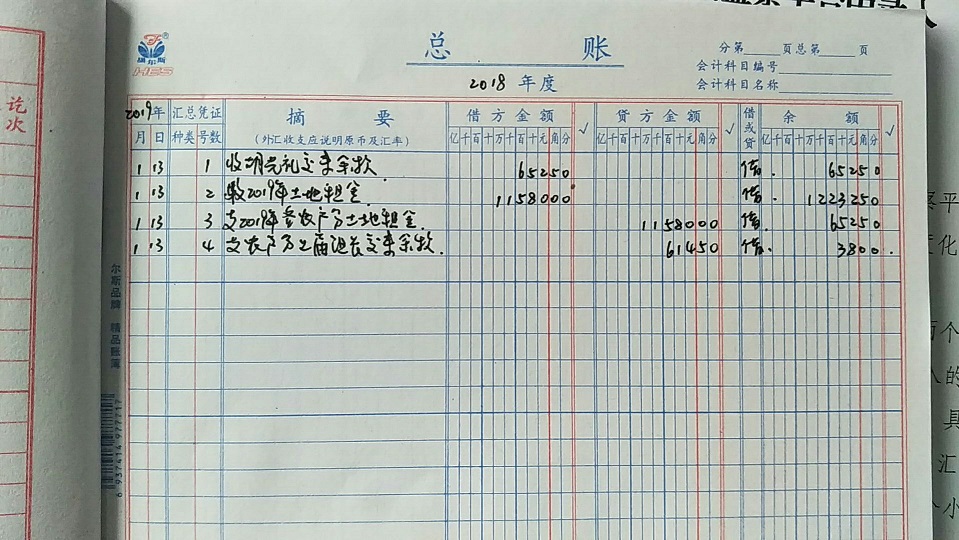 总 账
分第 页总第 页
会计科目编号
会计科目名称
2018 年度
HES
2019年 汇总凭证 摘 要 借方金额 √ 贷方金额 √ 借或贷 余 额 √
月 日 种类 号数 (外汇收支应说明原币及汇率) 亿千百十万千百十元角分 亿千百十万千百十元角分 亿千百十万千百十元角分
1 13 1 65250 借. 65250
1 13 2 2019年土地租金. 1158000 借. 1223250
1 13 3 支2019年 农户 土地租金. 1158000 借. 65250
1 13 4 支农户 余款. 61450 借. 3800.
尔斯品牌 精品账簿
6937414977717